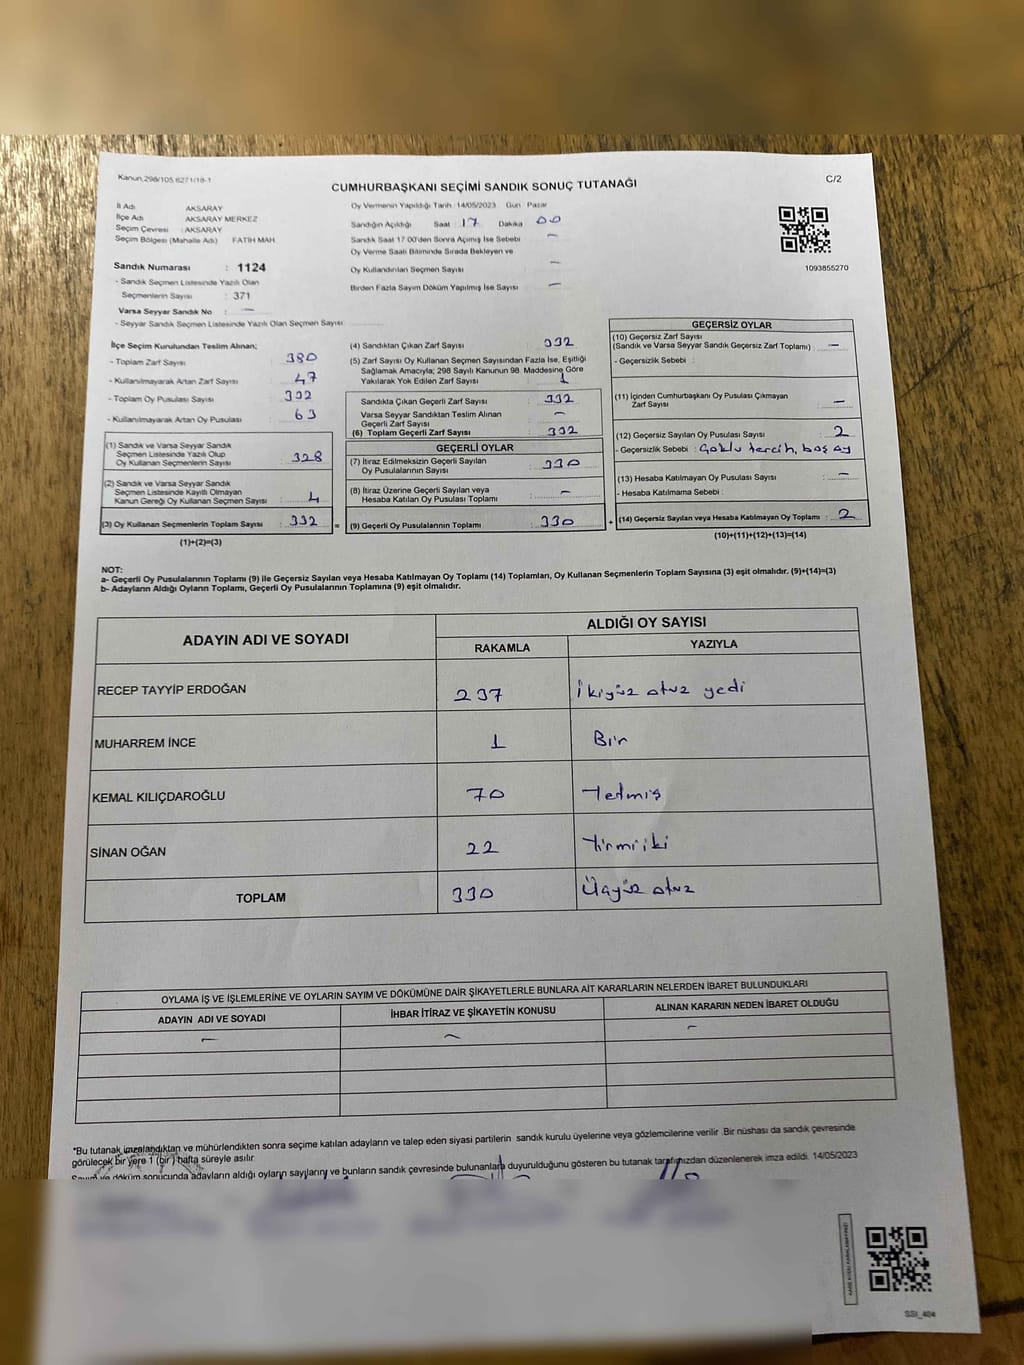 Kanun, 298/105 6271/18-1
CUMHURBAŞKANI SEÇİMİ SANDIK SONUÇ TUTANAĞI
C/2
İl Adı AKSARAY
İlçe Adı AKSARAY MERKEZ
Seçim Çevresi : AKSARAY
Seçim Bölgesi (Mahalle Adı) FATİH MAH.
Sandık Numarası : 1124
- Sandık Seçmen Listesinde Yazılı Olan
Seçmenlerin Sayısı : 371
Varsa Seyyar Sandık No : —
- Seyyar Sandık Seçmen Listesinde Yazılı Olan Seçmen Sayısı
Oy Vermenin Yapıldığı Tarih : 14/05/2023 Gün Pazar
Sandığın Açıldığı Saat : 17 Dakika 00
Sandık Saat 17.00'den Sonra Açılmış İse Sebebi —
Oy Verme Saati Bitiminde Sırada Bekleyen ve
Oy Kullandırılan Seçmen Sayısı —
Birden Fazla Sayım Döküm Yapılmış İse Sayısı —
1093855270
İlçe Seçim Kurulundan Teslim Alınan;
- Toplam Zarf Sayısı 380
- Kullanılmayarak Artan Zarf Sayısı 47
- Toplam Oy Pusulası Sayısı 392
- Kullanılmayarak Artan Oy Pusulası 63
(1) Sandık ve Varsa Seyyar Sandık
Seçmen Listesinde Yazılı Olup
Oy Kullanan Seçmenlerin Sayısı : 328
(2) Sandık ve Varsa Seyyar Sandık
Seçmen Listesinde Kayıtlı Olmayan
Kanun Gereği Oy Kullanan Seçmen Sayısı : 4
(3) Oy Kullanan Seçmenlerin Toplam Sayısı : 332 =
(1)+(2)=(3)
(4) Sandıktan Çıkan Zarf Sayısı : 332
(5) Zarf Sayısı Oy Kullanan Seçmen Sayısından Fazla İse, Eşitliği
Sağlamak Amacıyla; 298 Sayılı Kanunun 98. Maddesine Göre
Yakılarak Yok Edilen Zarf Sayısı : 1
Sandıkta Çıkan Geçerli Zarf Sayısı : 332
Varsa Seyyar Sandıktan Teslim Alınan
Geçerli Zarf Sayısı : —
(6) Toplam Geçerli Zarf Sayısı : 332
GEÇERLİ OYLAR
(7) İtiraz Edilmeksizin Geçerli Sayılan
Oy Pusulalarının Sayısı : 330
(8) İtiraz Üzerine Geçerli Sayılan veya
Hesaba Katılan Oy Pusulası Toplamı : —
(9) Geçerli Oy Pusulalarının Toplamı : 330 +
GEÇERSİZ OYLAR
(10) Geçersiz Zarf Sayısı
(Sandık ve Varsa Seyyar Sandık Geçersiz Zarf Toplamı) : —
- Geçersizlik Sebebi :
(11) İçinden Cumhurbaşkanı Oy Pusulası Çıkmayan
Zarf Sayısı : —
(12) Geçersiz Sayılan Oy Pusulası Sayısı : 2
- Geçersizlik Sebebi : Çoklu tercih, boş oy
(13) Hesaba Katılmayan Oy Pusulası Sayısı : —
- Hesaba Katılmama Sebebi :
(14) Geçersiz Sayılan veya Hesaba Katılmayan Oy Toplamı : 2
(10)+(11)+(12)+(13)=(14)
NOT:
a- Geçerli Oy Pusulalarının Toplamı (9) ile Geçersiz Sayılan veya Hesaba Katılmayan Oy Toplamı (14) Toplamları, Oy Kullanan Seçmenlerin Toplam Sayısına (3) eşit olmalıdır. (9)+(14)=(3)
b- Adayların Aldığı Oyların Toplamı, Geçerli Oy Pusulalarının Toplamına (9) eşit olmalıdır.
ADAYIN ADI VE SOYADI ALDIĞI OY SAYISI
RAKAMLA YAZIYLA
RECEP TAYYİP ERDOĞAN 237 İkiyüz otuz yedi
MUHARREM İNCE 1 Bir
KEMAL KILIÇDAROĞLU 70 Yetmiş
SİNAN OĞAN 22 Yirmiiki
TOPLAM 330 Üçyüz otuz
OYLAMA İŞ VE İŞLEMLERİNE VE OYLARIN SAYIM VE DÖKÜMÜNE DAİR ŞİKAYETLERLE BUNLARA AİT KARARLARIN NELERDEN İBARET BULUNDUKLARI
ADAYIN ADI VE SOYADI İHBAR İTİRAZ VE ŞİKAYETİN KONUSU ALINAN KARARIN NEDEN İBARET OLDUĞU
— — —
*Bu tutanak imzalandıktan ve mühürlendikten sonra seçime katılan adayların ve talep eden siyasi partilerin sandık kurulu üyelerine veya gözlemcilerine verilir .Bir nüshası da sandık çevresinde
görülecek bir yere 1 (bir ) hafta süreyle asılır.
Sayım ve döküm sonucunda adayların aldığı oyların sayılarını ve bunların sandık çevresinde bulunanlara duyurulduğunu gösteren bu tutanak tarafımızdan düzenlenerek imza edildi. 14/05/2023
SSI_404